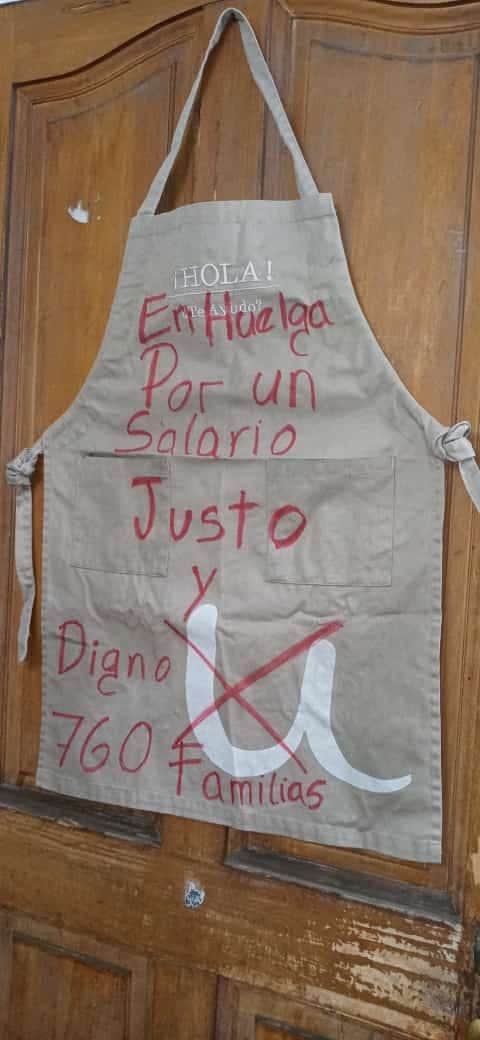 ¡HOLA!
¿Te Ayudo?
En Huelga
Por un
Salario
Justo
y
Digno
u
760 Familias